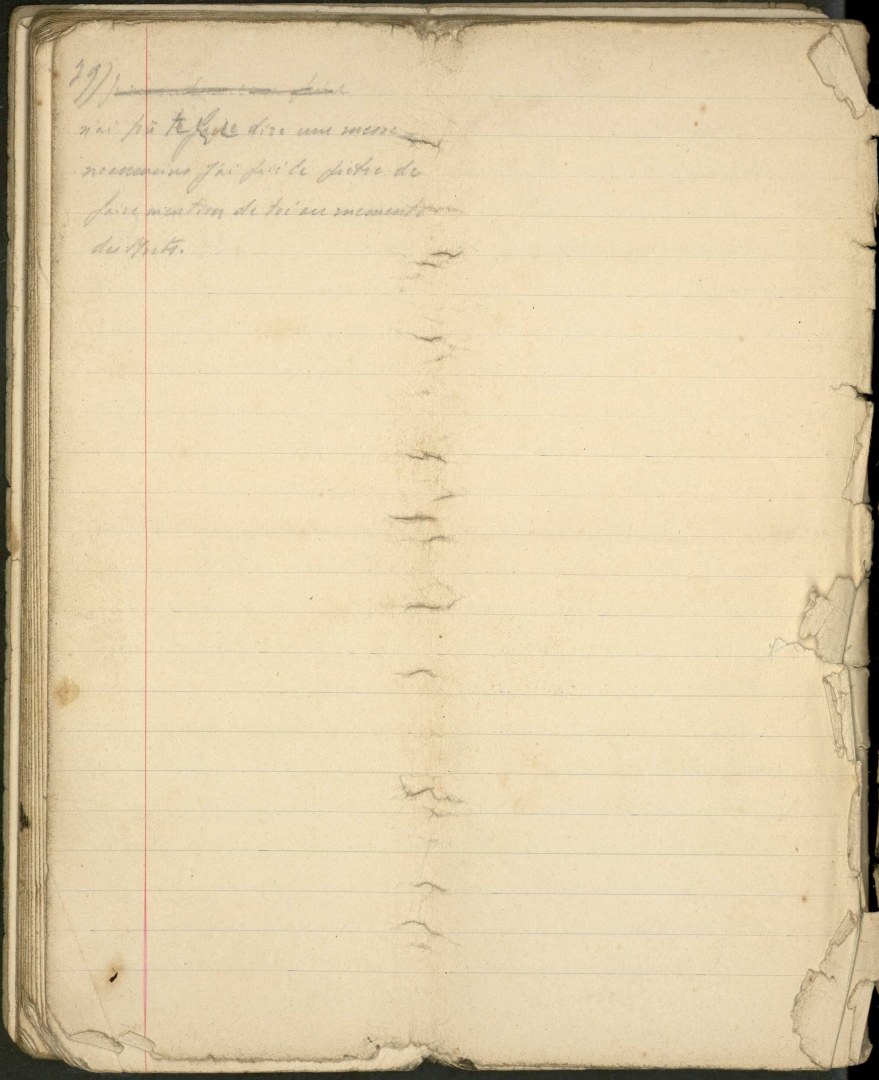 29)
n'ai pû te faire dire une messe
neanmoins j'ai prié le prêtre de
faire mention de toi au memento
des Morts.